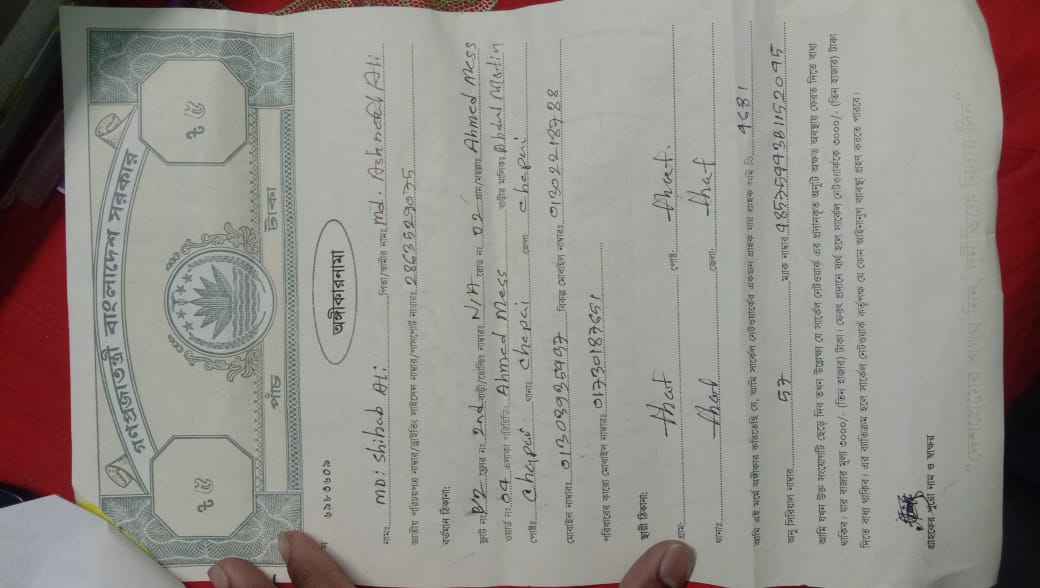 গণপ্রজাতন্ত্রী বাংলাদেশ সরকার
৳ ৫ ৳ ৫
পাঁচ টাকা
৬৯৮৩৬০৯
অঙ্গীকারনামা
নামঃ MD: Shihab Ali: পিতা/স্বামীর নামঃ Md. Ashraful Ali:
জাতীয় পরিচয়পত্র নাম্বার/ড্রাইভিং লাইসেন্স নাম্বার/পাসপোর্ট নাম্বারঃ 2863529035
বর্তমান ঠিকানা:
ফ্লাট নং: B/2 ফ্লোর নং: 2nd বাড়ী/হোল্ডিং নাম্বারঃ N/A রোড নং: 02 গ্রাম/মহল্লাঃ Ahmed Mess
ওয়ার্ড নং: 04 এলাকা পরিচিতিঃ Ahmed Mess বাড়ীর মালিকঃ Abdul Motin
পোষ্টঃ Chapai থানাঃ Chapai জেলাঃ Chapai
মোবাইল নাম্বারঃ 01308935937 বিকল্প মোবাইল নাম্বারঃ 01302218788
পরিবারের কারো মোবাইল নাম্বারঃ 01730187651
স্থায়ী ঠিকানা:
গ্রাম: that পোষ্ট: that.
থানাঃ that জেলা: that
আমি এই মর্মে অঙ্গীকার করিতেছি যে, আমি সার্কেল নেটওয়ার্কের একজন গ্রাহক যার গ্রাহক আই ডি 4681
অনু সিরিয়াল নাম্বার 57 ম্যাক নাম্বার
আমি যখন উক্ত সংযোগটি ছেড়ে দিব তখন উল্লেখ্য যে সার্কেল নেটওয়ার্ক এর প্রদানকৃত অনুটি অক্ষত অবস্থায় ফেরত দিতে বাধ্য
থাকিব। যার বাজার মূল্য ৩০০০/- (তিন হাজার) টাকা। ফেরৎ প্রদানে ব্যর্থ হলে সার্কেল নেটওয়ার্ককে ৩০০০/- (তিন হাজার) টাকা
দিতে বাধ্য থাকিব। এর ব্যতিক্রম হলে সার্কেল নেটওয়ার্ক কর্তৃপক্ষ যে কোন আইনানুগ ব্যবস্থা গ্রহণ করতে পারবে।
গ্রাহকের পুরো নাম ও স্বাক্ষর
"দেশপ্রেমের শপথ নিন, দুর্নীতিকে বিদায় দিন"